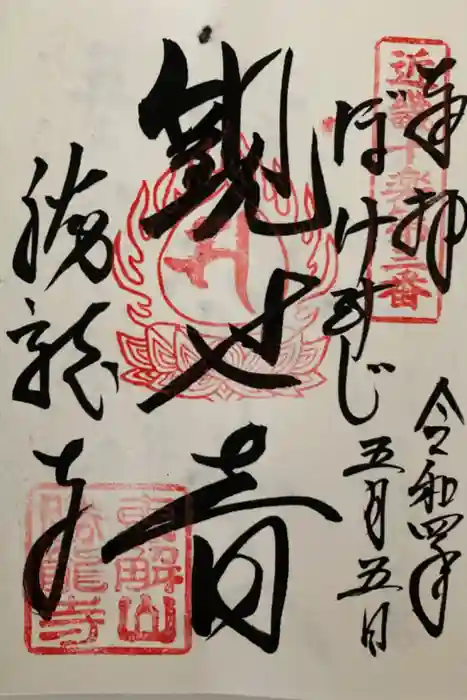 奉拝
令和四年
近畿十楽第三番
ぼけ封じ
五月五日
観世音
勝龍寺
恵解山
勝龍寺